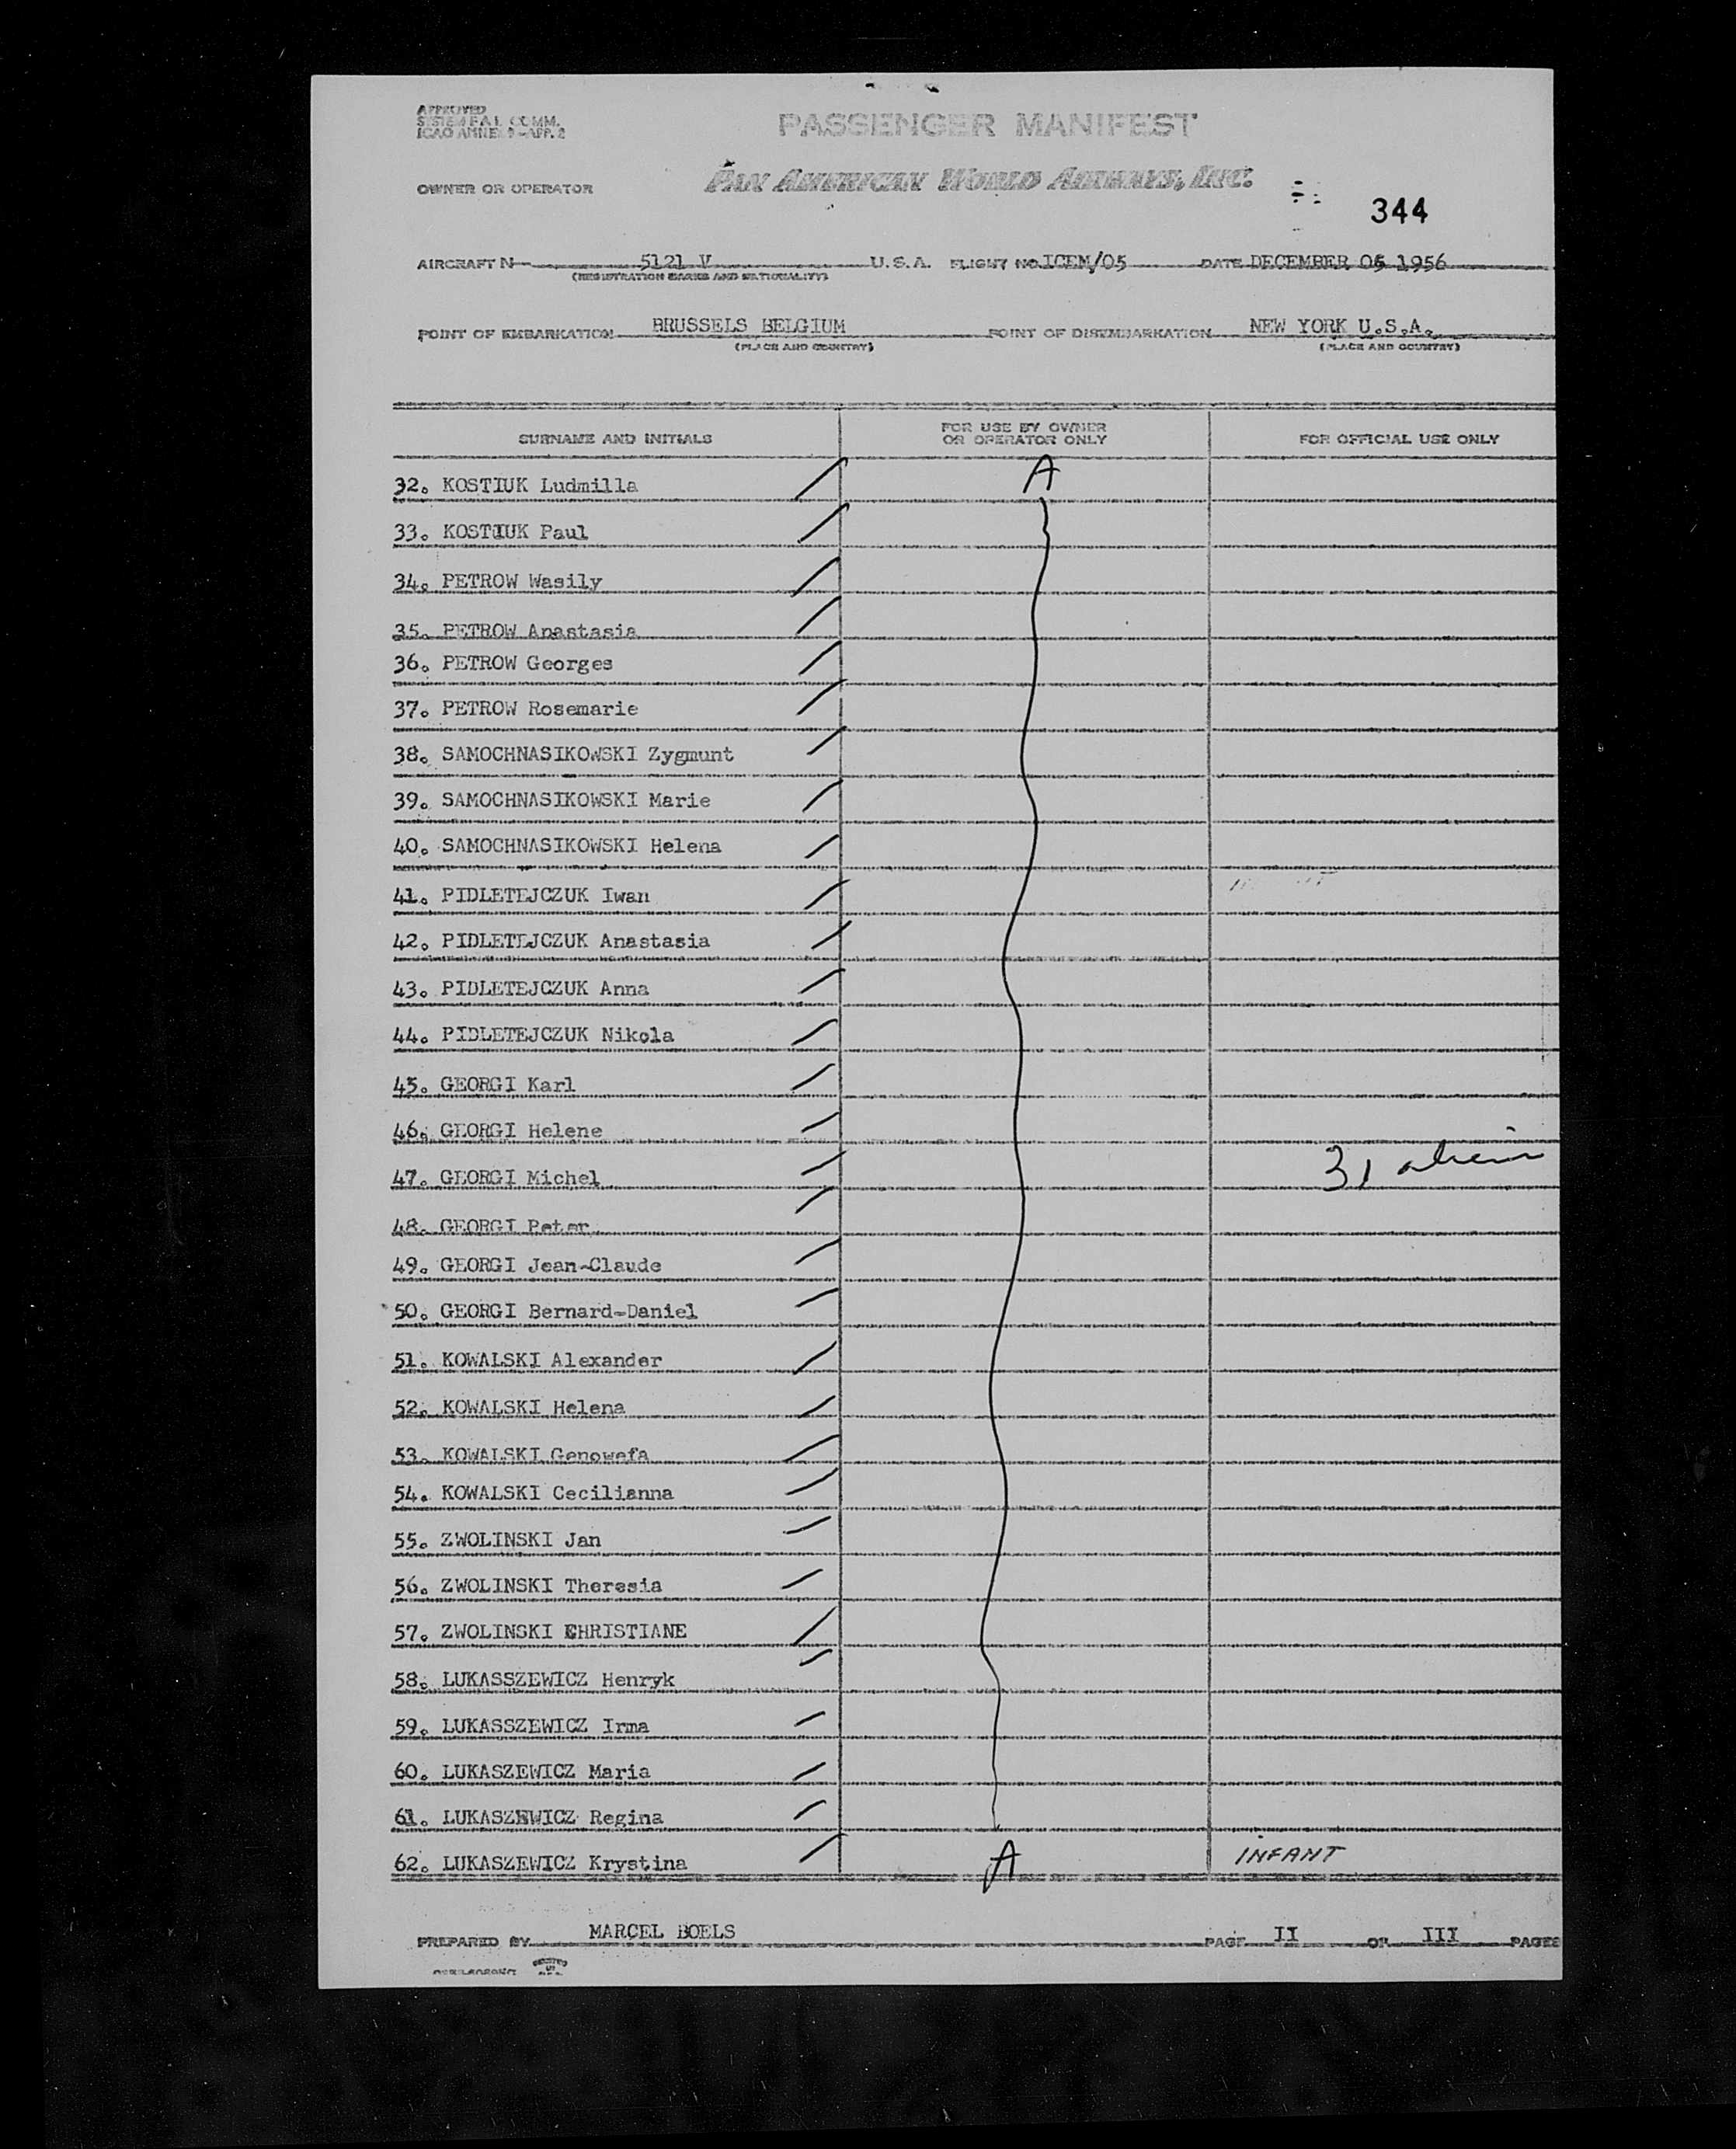 APPROVED
SYSTEM F.A.L. COMM.
ICAO ANNEX 9-APP. 2
PASSENGER MANIFEST
OWNER OR OPERATOR
PAN AMERICAN WORLD AIRWAYS, INC.
344
AIRCRAFT N 5121 V U.S.A. FLIGHT NO. ICEM/05 DATE DECEMBER 05 1956
(REGISTRATION MARKS AND NATIONALITY)
POINT OF EMBARKATION BRUSSELS BELGIUM POINT OF DISEMBARKATION NEW YORK U.S.A.
(PLACE AND COUNTRY) (PLACE AND COUNTRY)
SURNAME AND INITIALS FOR USE BY OWNER OR OPERATOR ONLY FOR OFFICIAL USE ONLY
32. KOSTIUK Ludmilla A
33. KOSTIUK Paul
34. PETROW Wasily
35. PETROW Anastasia
36. PETROW Georges
37. PETROW Rosemarie
38. SAMOCHNASIKOWSKI Zygmunt
39. SAMOCHNASIKOWSKI Marie
40. SAMOCHNASIKOWSKI Helena
41. PIDLETEJCZUK Iwan
42. PIDLETEJCZUK Anastasia
43. PIDLETEJCZUK Anna
44. PIDLETEJCZUK Nikola
45. GEORGI Karl
46. GEORGI Helene
47. GEORGI Michel 31
48. GEORGI Peter
49. GEORGI Jean-Claude
50. GEORGI Bernard-Daniel
51. KOWALSKI Alexander
52. KOWALSKI Helena
53. KOWALSKI Genowefa
54. KOWALSKI Cecilianna
55. ZWOLINSKI Jan
56. ZWOLINSKI Theresia
57. ZWOLINSKI CHRISTIANE
58. LUKASSZEWICZ Henryk
59. LUKASSZEWICZ Irma
60. LUKASZEWICZ Maria
61. LUKASZEWICZ Regina
62. LUKASZEWICZ Krystina A INFANT
PREPARED BY MARCEL BOELS PAGE II OF III PAGES
PRINTED IN U.S.A.